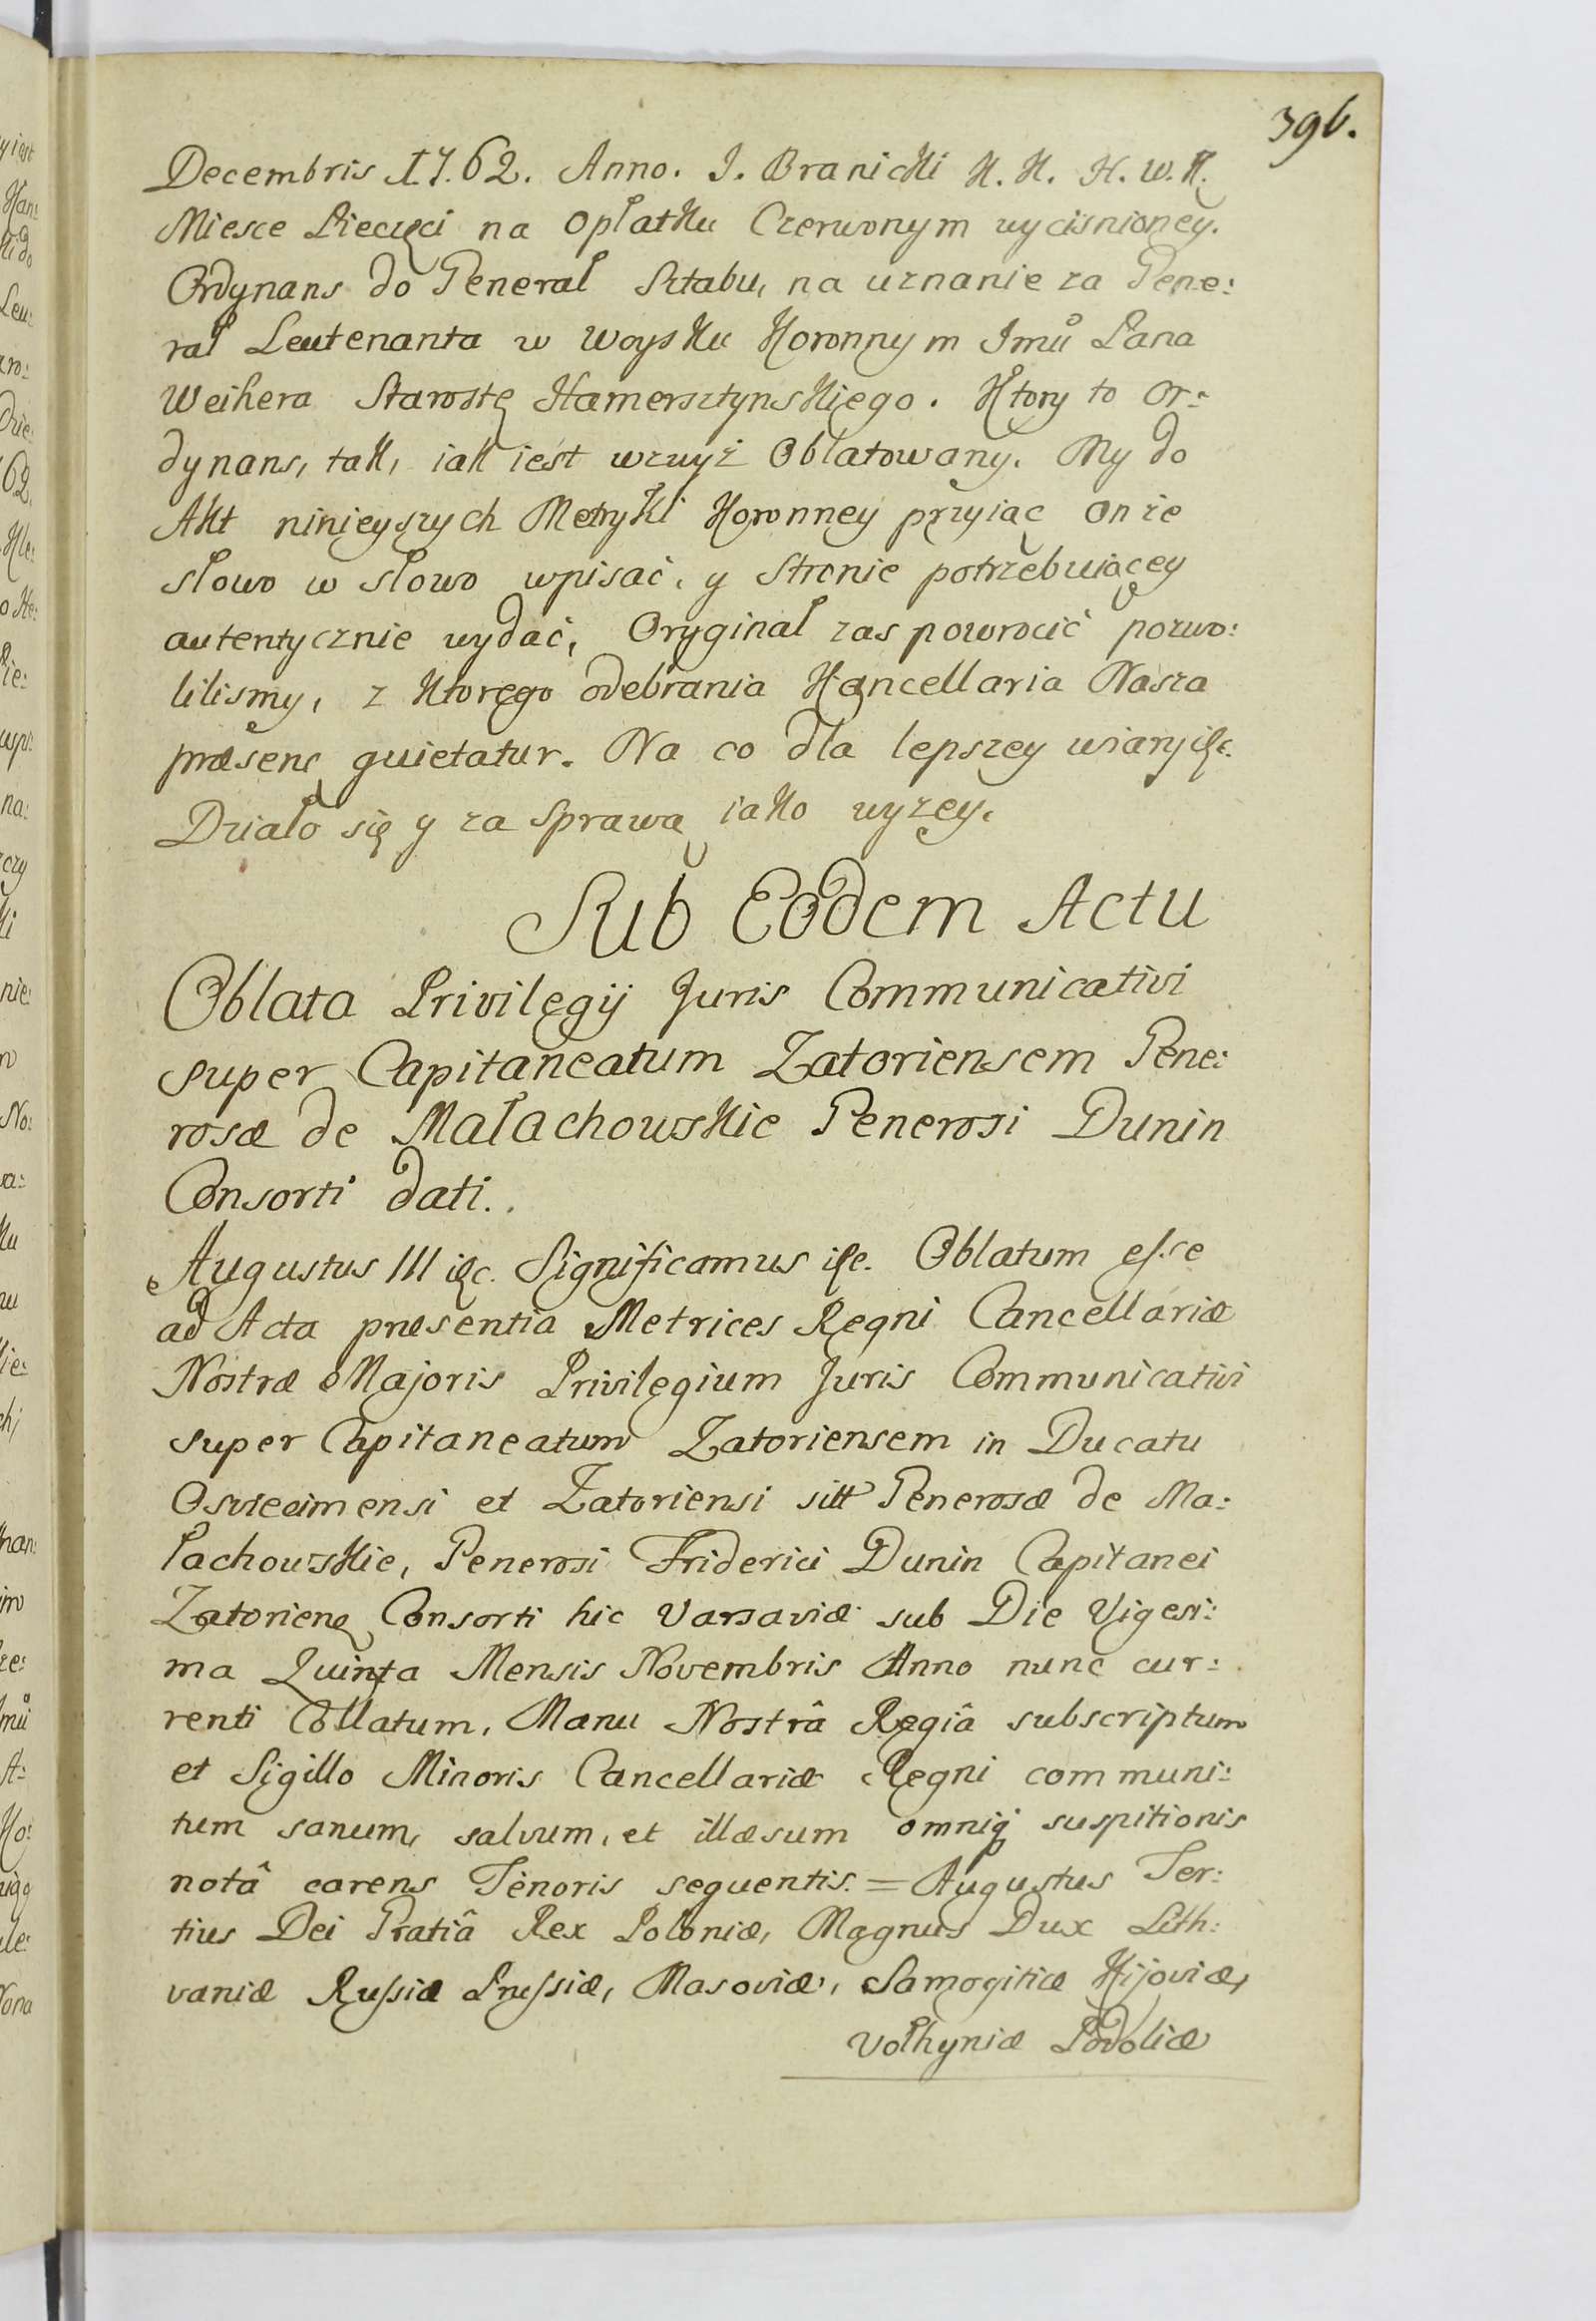 396.
Decembris 1.7.62. Anno. J. Branicki K. K. H. W. K.
Miesce Pieczęci na opłatku Czerwonym wycisnioney.
Ordynans do General Sztabu, na uznanie za Gene:
rał Leutenanta w Woysku Koronnym Jmu Pana
Weihera Starostę Hamersztynskiego. Ktory to Or:
dynans, tak, iak iest wzwyż Oblatowany. My do
Akt ninieyszych Metryki Koronney przyiąc onże
słowo w słowo wpisać, y Stronie potrzebuiącey
autentycznie wydać, Oryginał zas powrocić pozwo:
lilismy, z ktorego odebrania Kancellaria Nasza
præsenę quietatur. Na co dla lepszey wiary &c.
Działo się y za sprawą iako wyzey.
Sub Eodem Actu
Oblata Privilegij Juris Communicativi
super Capitaneatum Zatoriensem Gene:
rosæ de Małachowskie Generosi Dunin
Consorti dati..
Augustus III &c. Significamus &c. Oblatum esse
ad Acta præsentia Metrices Regni Cancellariæ
Nostræ Majoris Privilegium Juris Communicativi
super Capitaneatum Zatoriensem in Ducatu
Osviecimensi et Zatoriensi sitt Generosæ de Ma:
łachowskie, Generosi Friderici Dunin Capitanei
Zatorienę Consorti hic Varsaviæ sub Die Vigesi:
ma Quinta Mensis Novembris Anno nunc cur:
renti Collatum, Manu Nostrâ Regiâ subscriptum
et Sigillo Minoris Cancellariæ Regni communi:
tum sanum, salvum, et illæsum omniq suspitionis
notâ carens Tenoris sequentis. = Augustus Ter:
tius Dei Gratiâ Rex Poloniæ, Magnus Dux Lith:
vaniæ Russiæ Prussiæ, Masoviæ, Samogitiæ Kijoviæ,
Volhyniæ Podoliæ